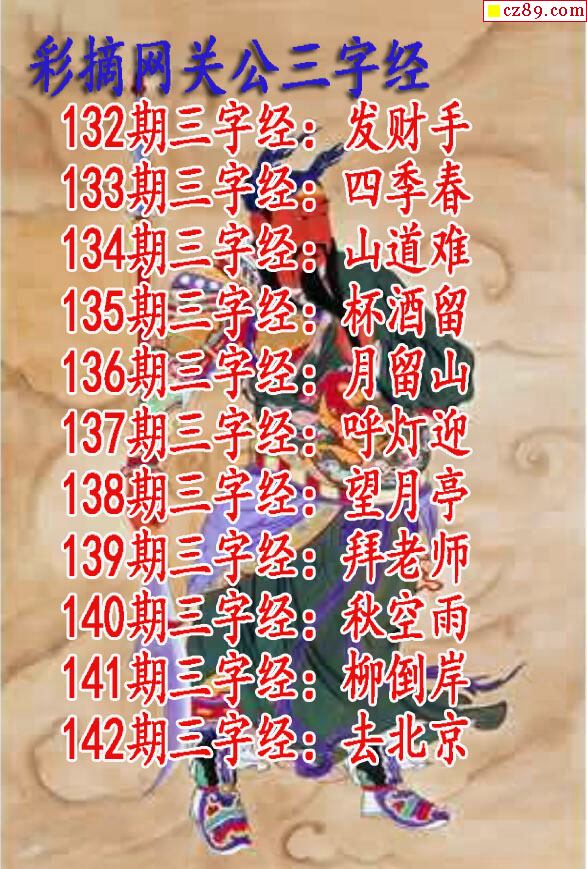 cz89.com
彩摘网关公三字经
132期三字经：发财手
133期三字经：四季春
134期三字经：山道难
135期三字经：杯酒留
136期三字经：月留山
137期三字经：呼灯迎
138期三字经：望月亭
139期三字经：拜老师
140期三字经：秋空雨
141期三字经：柳倒岸
142期三字经：去北京